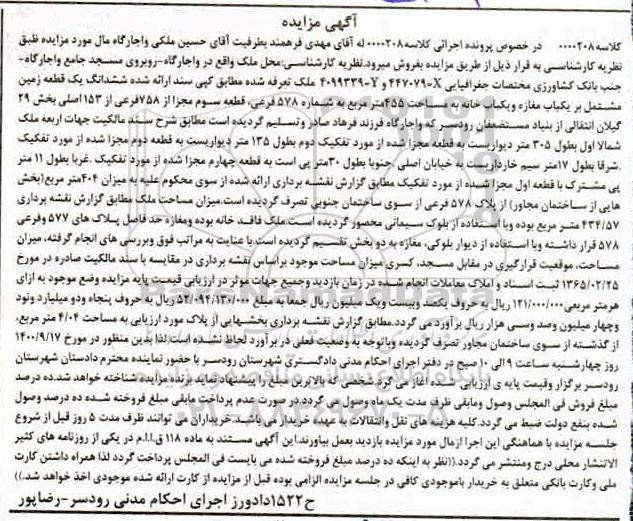 آگهی مزایده
کلاسه ۰۰۰۰۲۰۸ در خصوص پرونده اجرائی کلاسه ۰۰۰۰۲۰۸ له آقای مهدی فرهمند بطرفیت آقای حسین ملکی واجارگاه مال مورد مزایده طبق
نظریه کارشناسی به قرار ذیل از طریق مزایده بفروش میرود.نظریه کارشناسی:محل ملک واقع در واجارگاه-روبروی مسجد جامع واجارگاه-
جنب بانک کشاورزی مختصات جغرافیایی X=۴۴۷۰۷۹ و Y=۴۰۹۹۳۳۹ ملک تعرفه شده مطابق کپی سند ارائه شده ششدانگ یک قطعه زمین
مشتمل بر یکباب مغازه ویکباب خانه به مساحت ۴۵۵متر مربع به شماره ۵۷۸ فرعی، قطعه سوم مجزا از ۷۵۸فرعی از ۱۵۳ اصلی بخش ۲۹
گیلان انتقالی از بنیاد مستضعفان رودسر که واجارگاه فرزند فرهاد صادر وتسلیم گردیده است مطابق شرح سند مالکیت جهات اربعه ملک
شمالا اول بطول ۳۰۵ متر دیواریست به قطعه مجزا شده از مورد تفکیک دوم بطول ۱۳۵ متر دیواریست به قطعه دوم مجزا شده از مورد تفکیک
.شرقا بطول ۱۷متر سیم خارداریست به خیابان اصلی .جنوبا بطول ۳۰متر پی است به قطعه چهارم مجزا شده از مورد تفکیک .غربا بطول ۱۱ متر
پی مشترک با قطعه اول مجزا شده از مورد تفکیک مطابق گزارش نقشه برداری ارائه شده از سوی محکوم علیه به میزان ۴۰۴متر مربع(بخش
هایی از ساختمان مجاور) از پلاک ۵۷۸ فرعی از سوی ساختمان جنوبی تصرف گردیده است.میزان مساحت ملک مطابق گزارش نقشه برداری
۴۳۴/۵۷ متر مربع بوده وبا استفاده از بلوک سیمانی محصور گردیده است.ملک فاقد خانه بوده ومغازه حد فاصل پلاک های ۵۷۷ وفرعی
۵۷۸ قرار داشته وبا استفاده از دیوار بلوکی، مغازه به دو بخش تقسیم گردیده است.با عنایت به مراتب فوق وبررسی های انجام گرفته، میزان
مساحت، موقعیت قرارگیری در مقابل مسجد، کسری میزان مساحت موجود براساس نقشه برداری در مقایسه با سند مالکیت صادره در مورخ
۱۳۶۵/۰۲/۲۵ ثبت اسناد و املاک معاملات انجام شده در زمان بازدید وجمیع جهات موثر در ارزیابی قیمت پایه مزایده وضع موجود به ازای
هرمتر مربعی ۱۲۱/۰۰۰/۰۰۰ ریال به حروف یکصد وبیست ویک میلیون ریال جمعا به مبلغ ۵۲/۰۹۴/۱۳۰/۰۰۰ ریال به حروف پنجاه ودو میلیارد ونود
وچهار میلیون وصد وسی هزار ریال برآورد می گردد.مطابق گزارش نقشه برداری بخشهایی از پلاک مورد ارزیابی به مساحت ۴/۰۴ متر مربع،
از گذشته از سوی ساختمان مجاور تصرف گردیده وباتوجه به وضعیت فعلی در برآورد لحاظ نشده است.لذا بدین منظور در مورخ ۱۴۰۰/۹/۱۷
روز چهارشنبه ساعت ۹ الی ۱۰ صبح در دفتر اجرای احکام مدنی دادگستری شهرستان رودسر با حضور نماینده محترم دادستان شهرستان
رودسر برگزار وقیمت پایه ی ارزیابی شده آغاز می گرد شخصی که بالاترین مبلغ را پیشنهاد نماید برنده مزایده شناخته خواهد شد.ده درصد
مبلغ فروش فی المجلس وصول ومابقی ظرف مدت یک ماه وصول می گردد.در صورت عدم پرداخت مابقی مبلغ فروخته شده ده درصد وصول
شده بنفع دولت ضبط می گردد.کلیه هزینه های نقل وانتقالات به عهده خریدار می باشد.خریداران می توانند ظرف مدت ۵ روز قبل از شروع
جلسه مزایده با هماهنگی این اجرا ازمال مورد مزایده بازدید بعمل بیاورند.این آگهی مستند به ماده ۱۱۸ ق.ا.م در یکی از روزنامه های کثیر
الانتشار محلی درج ومنتشر می گردد.((نظر به اینکه ده درصد مبلغ فروخته شده می بایست فی المجلس پرداخت گردد لذا همراه داشتن کارت
ملی وکارت بانکی متعلق به خریدار باموجودی کافی در جلسه مزایده الزامی بوده قبل از مزایده از کارت ارائه شده موجودی اخذ خواهد شد.))
ح۱۵۲۲دادورز اجرای احکام مدنی رودسر-رضاپور